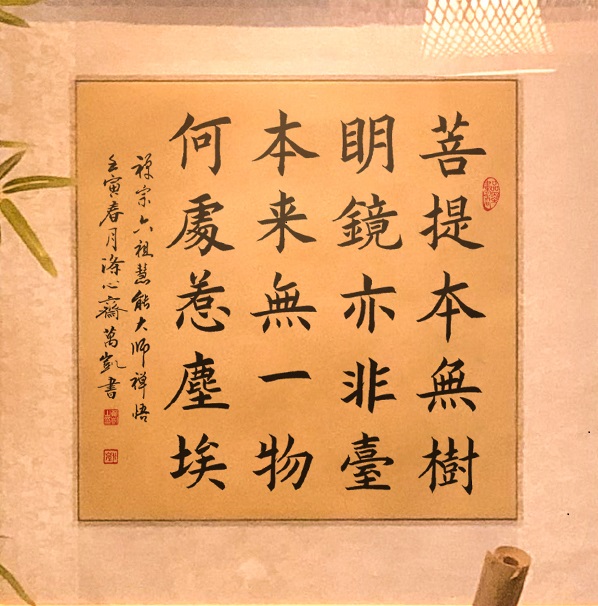 菩提本無樹
明鏡亦非臺
本来無一物
何處惹塵埃
禅宗六祖慧能大师禅悟
壬寅春月滌心齋萬凱書